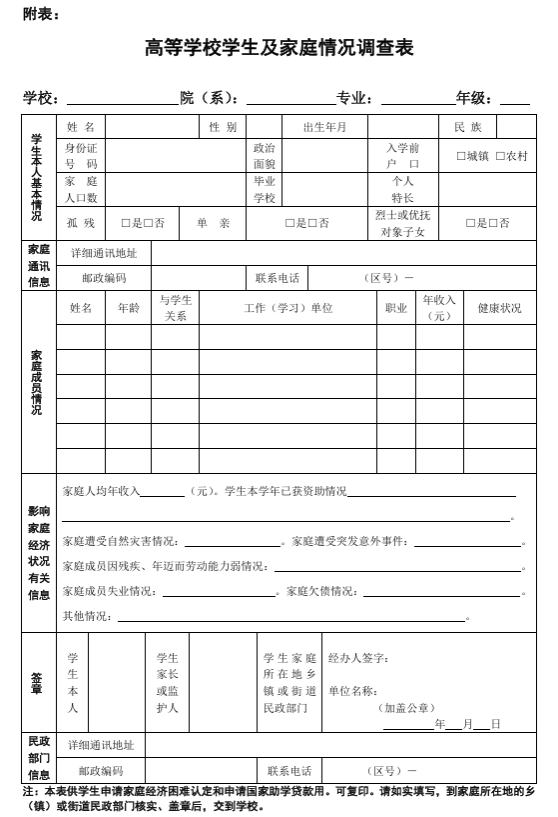 附表：
高等学校学生及家庭情况调查表
学校： 院（系）： 专业： 年级：
学生本人基本情况
姓 名 性 别 出生年月 民 族
身份证号 码 政治面貌 入学前户 口 □城镇 □农村
家 庭人口数 毕业学校 个人特长
孤 残 □是□否 单 亲 □是□否 烈士或优抚对象子女 □是□否
家庭通讯信息
详细通讯地址
邮政编码 联系电话 （区号）－
家庭成员情况
姓名 年龄 与学生关系 工作（学习）单位 职业 年收入（元） 健康状况
影响家庭经济状况有关信息
家庭人均年收入 （元）。学生本学年已获资助情况
。
家庭遭受自然灾害情况： 。家庭遭受突发意外事件： 。
家庭成员因残疾、年迈而劳动能力弱情况： 。
家庭成员失业情况： 。家庭欠债情况： 。
其他情况： 。
签章
学生本人
学生家长或监护人
学生家庭所在地乡镇或街道民政部门
经办人签字：
单位名称：
（加盖公章）
年 月 日
民政部门信息
详细通讯地址
邮政编码 联系电话 （区号）－
注：本表供学生申请家庭经济困难认定和申请国家助学贷款用。可复印。请如实填写，到家庭所在地的乡
（镇）或街道民政部门核实、盖章后，交到学校。